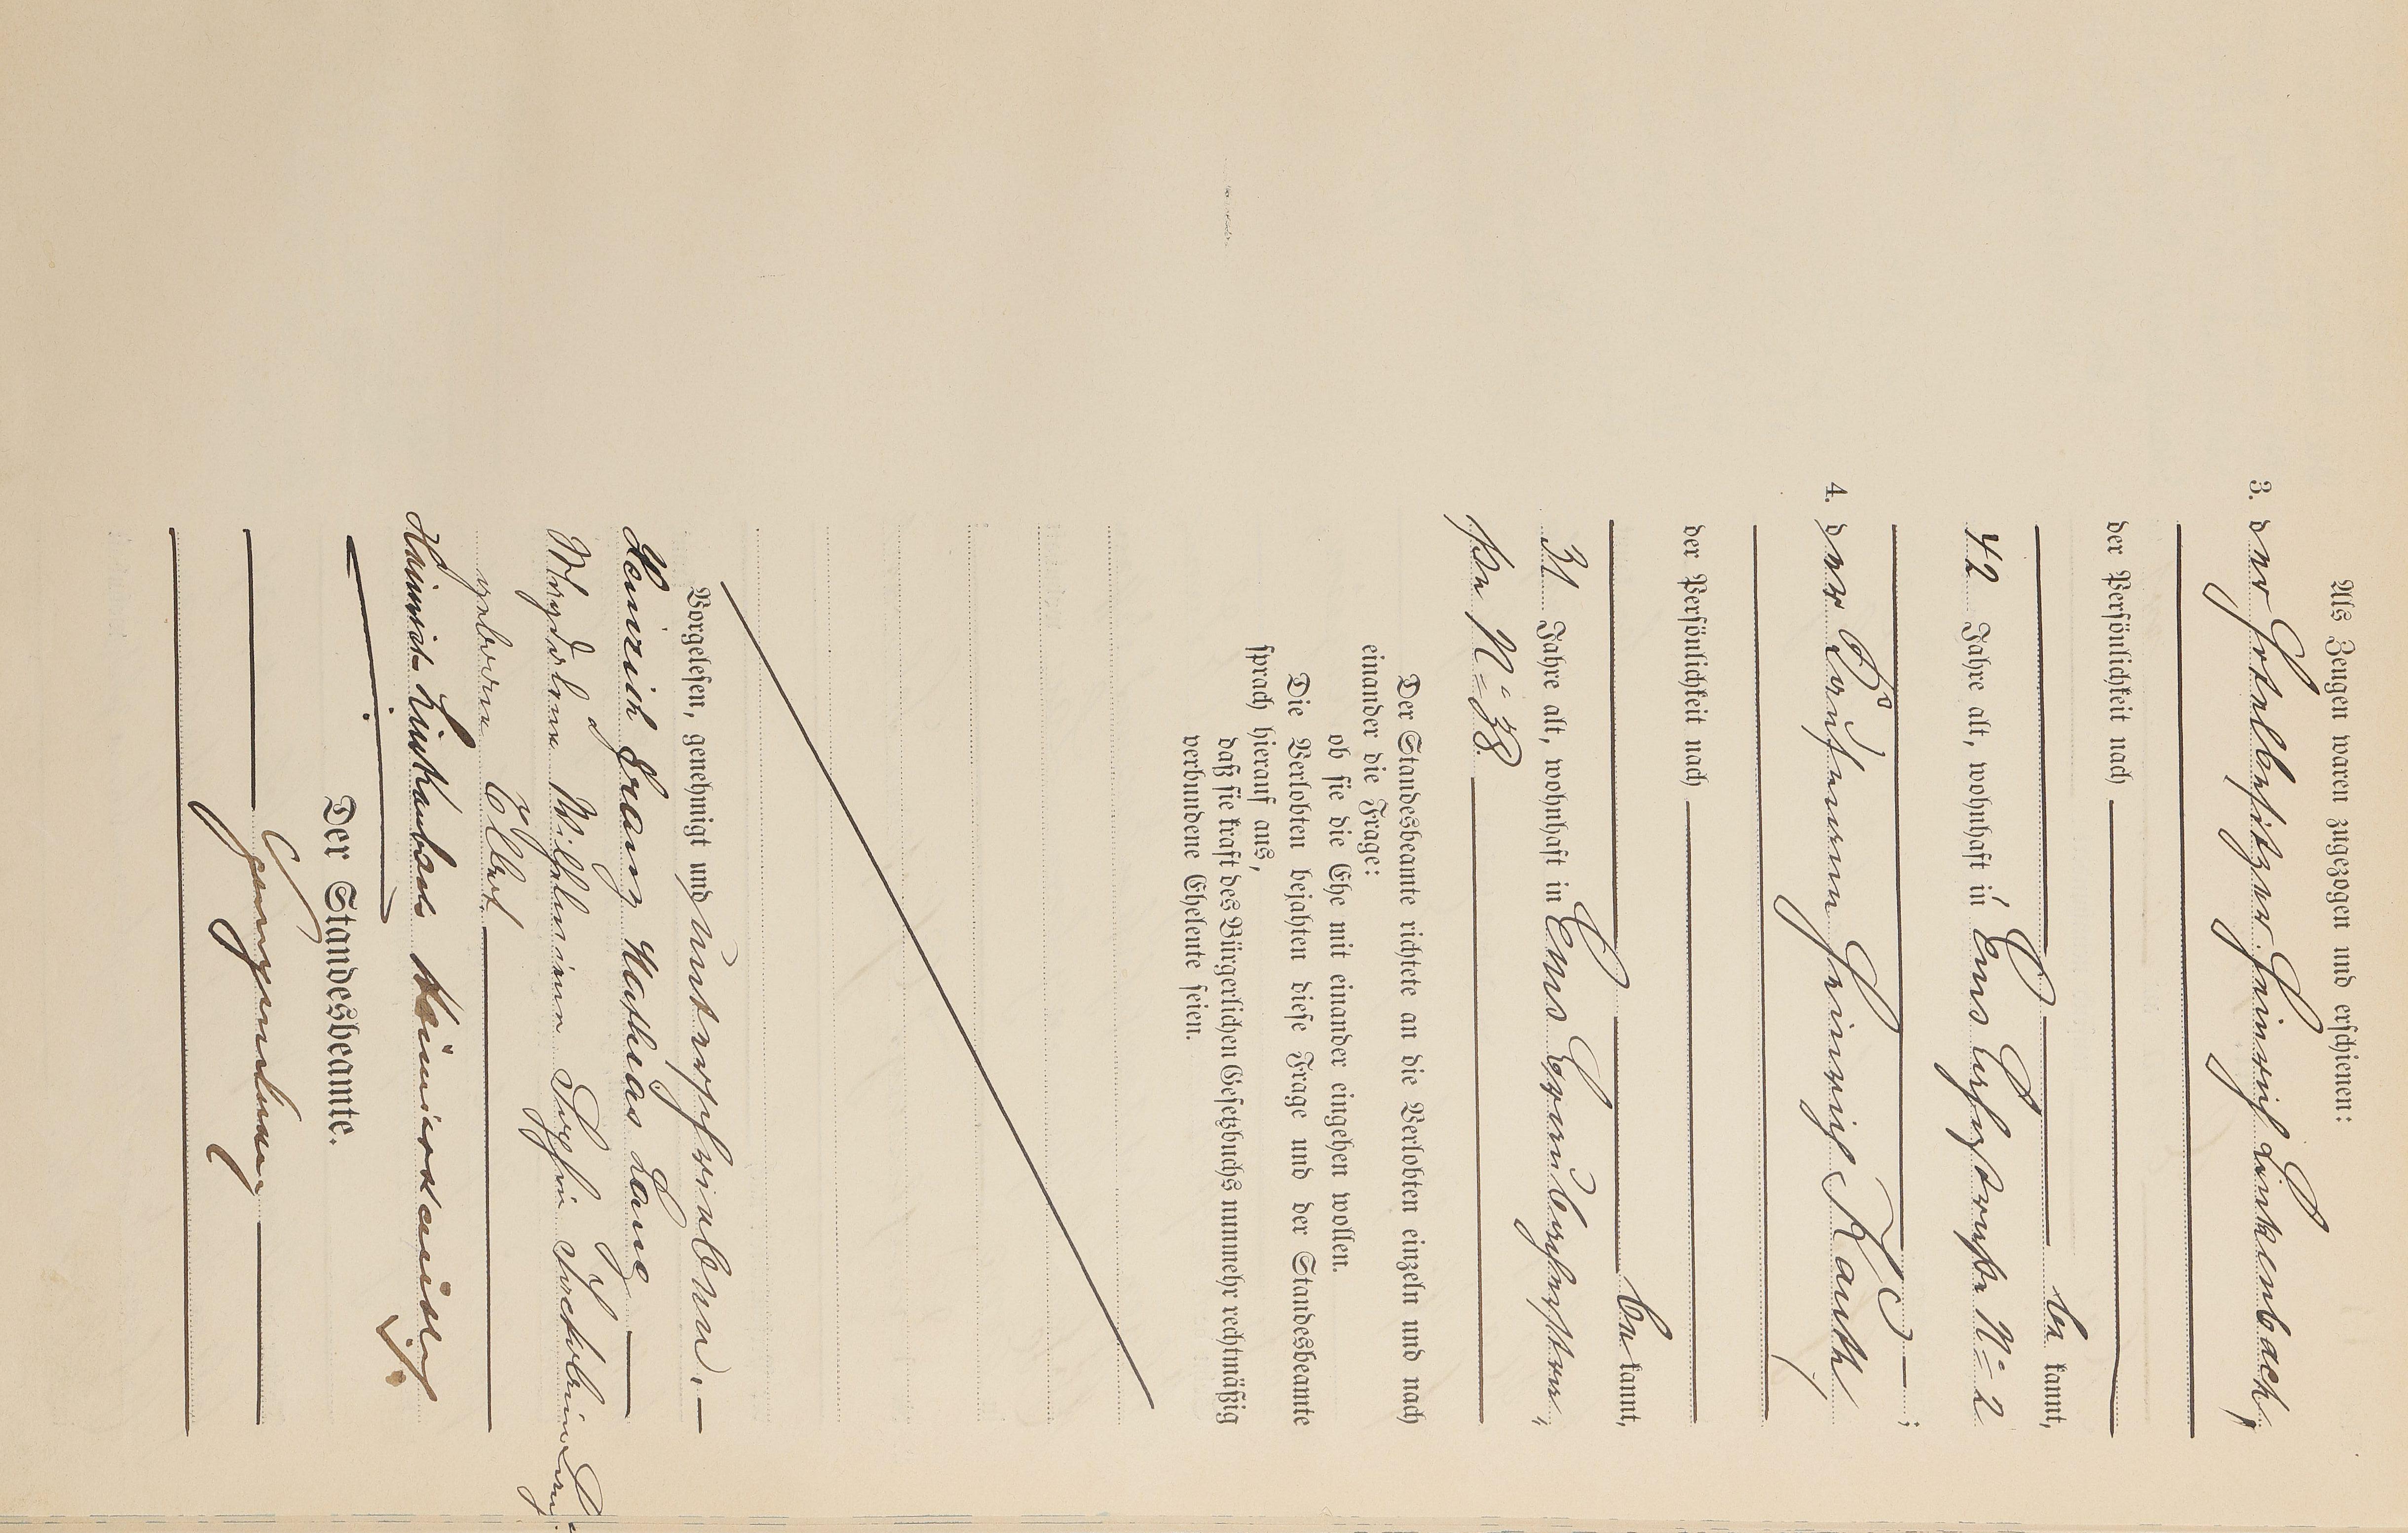 Als Zeugen waren zugezogen und erschienen:
3. der Hotelbesitzer Heinrich Linkenbach,
der Persönlichkeit nach
be kannt,
42 Jahre alt, wohnhaft in Ems, No 2
;
4. der Kaufmann Heinrich Kauth,
der Persönlichkeit nach
be kannt,
31 Jahre alt, wohnhaft in Ems,
ße No 38.
Der Standesbeamte richtete an die Verlobten einzeln und nach
einander die Frage:
ob sie die Ehe mit einander eingehen wollen.
Die Verlobten bejahten diese Frage und der Standesbeamte
sprach hierauf aus,
daß sie kraft des Bürgerlichen Gesetzbuchs nunmehr rechtmäßig
verbundene Eheleute seien.
Vorgelesen, genehmigt und unterschrieben.
Heinrich Franz Mathias Lang
Magdalene Wilhelmine Sophie Lang
geborene Ebert.
Heinrich Linkenbach Heinrich Kauth
Der Standesbeamte.